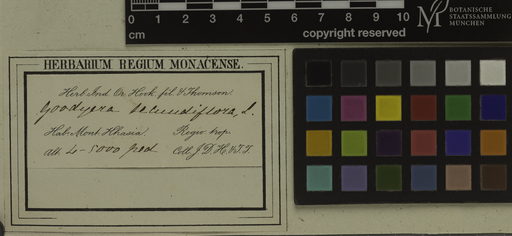 0 1 2 3 4 5 6 7 8 9 10
cm
copyright reserved
BOTANISCHE
STAATSSAMMLUNG
MÜNCHEN
HERBARIUM REGIUM MONACENSE.
Herb. Ind. Or. Hook. fil. & Thomson.
Goodyera secundiflora, L.
Hab. Mont. Khasia. Regio trop.
alt. 4-5000 ped. Coll. J. D. H. & T. T.